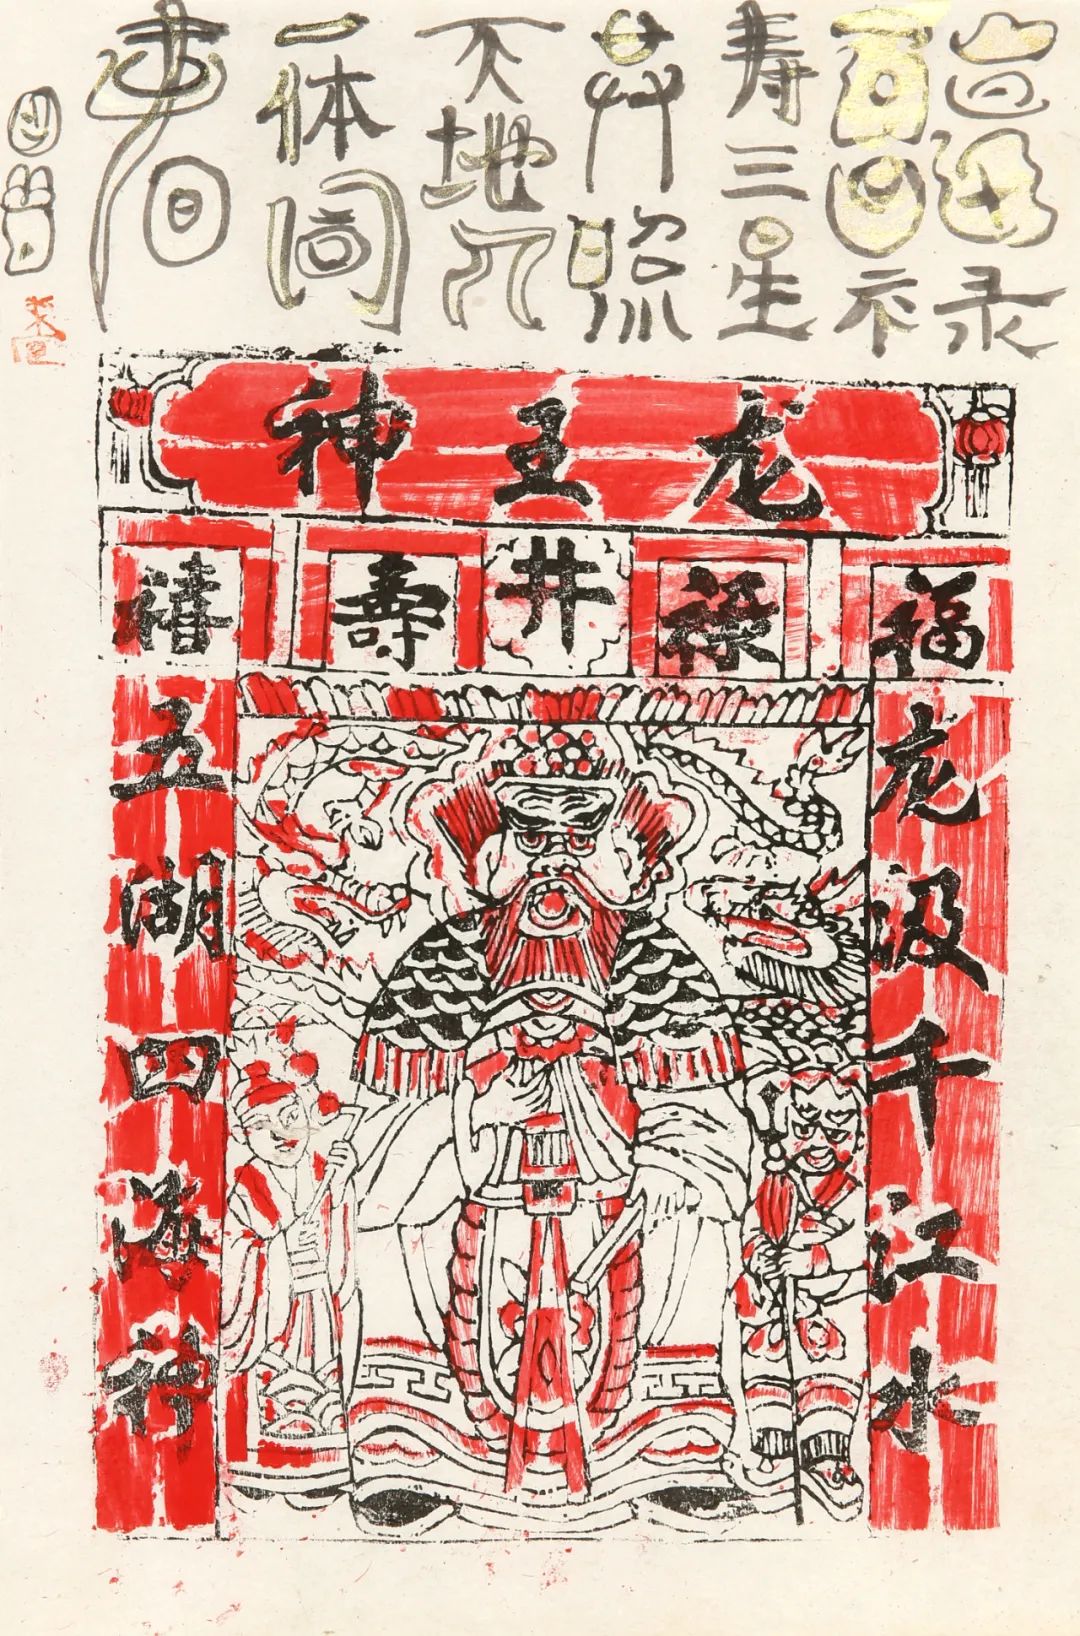 录
寿三星
共照
天地人
一体同
春
龙王神
福禄井壽禧
龙汲千江水
五湖四海行